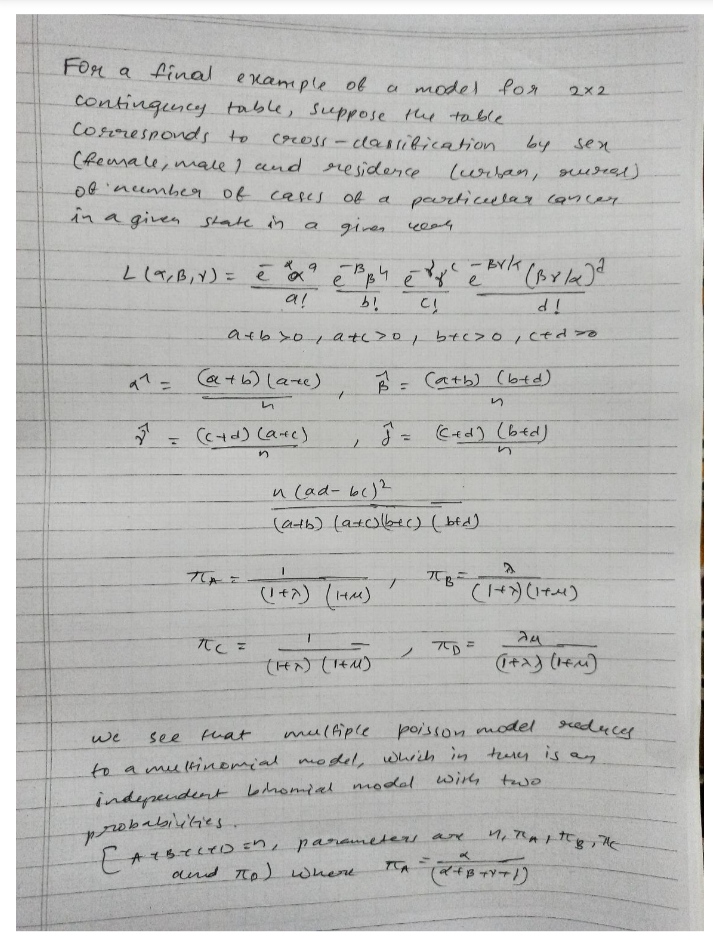 For a final example of a model for 2x2
contingency table, suppose the table
corresponds to cross-classification by sex
(female, male) and residence (urban, rural)
of number of cases of a particular cancer
in a given state in a given
L(α,β,γ) = e^-α α^a / a! e^-β β^b / b! e^-γ γ^c / c! e^-βγ/α (βγ/α)^d / d!
a+b>0, a+c>0, b+c>0, c+d>0
α^ = (a+b)(a+c) / n , β^ = (a+b)(b+d) / n
γ^ = (c+d)(a+c) / n , δ^ = (c+d)(b+d) / n
n(ad-bc)² / (a+b)(a+c)(b+c)(b+d)
πA = 1 / (1+λ)(1+μ) , πB = λ / (1+λ)(1+μ)
πC = 1 / (1+λ)(1+μ) , πD = λμ / (1+λ)(1+μ)
we see that multiple poisson model reduces
to a multinomial model, which in turn is an
independent binomial model with two
probabilities.
[A+B+C+D=n, parameters are n, πA, πB, πC
and πD) where πA = α / (α+β+γ+1)